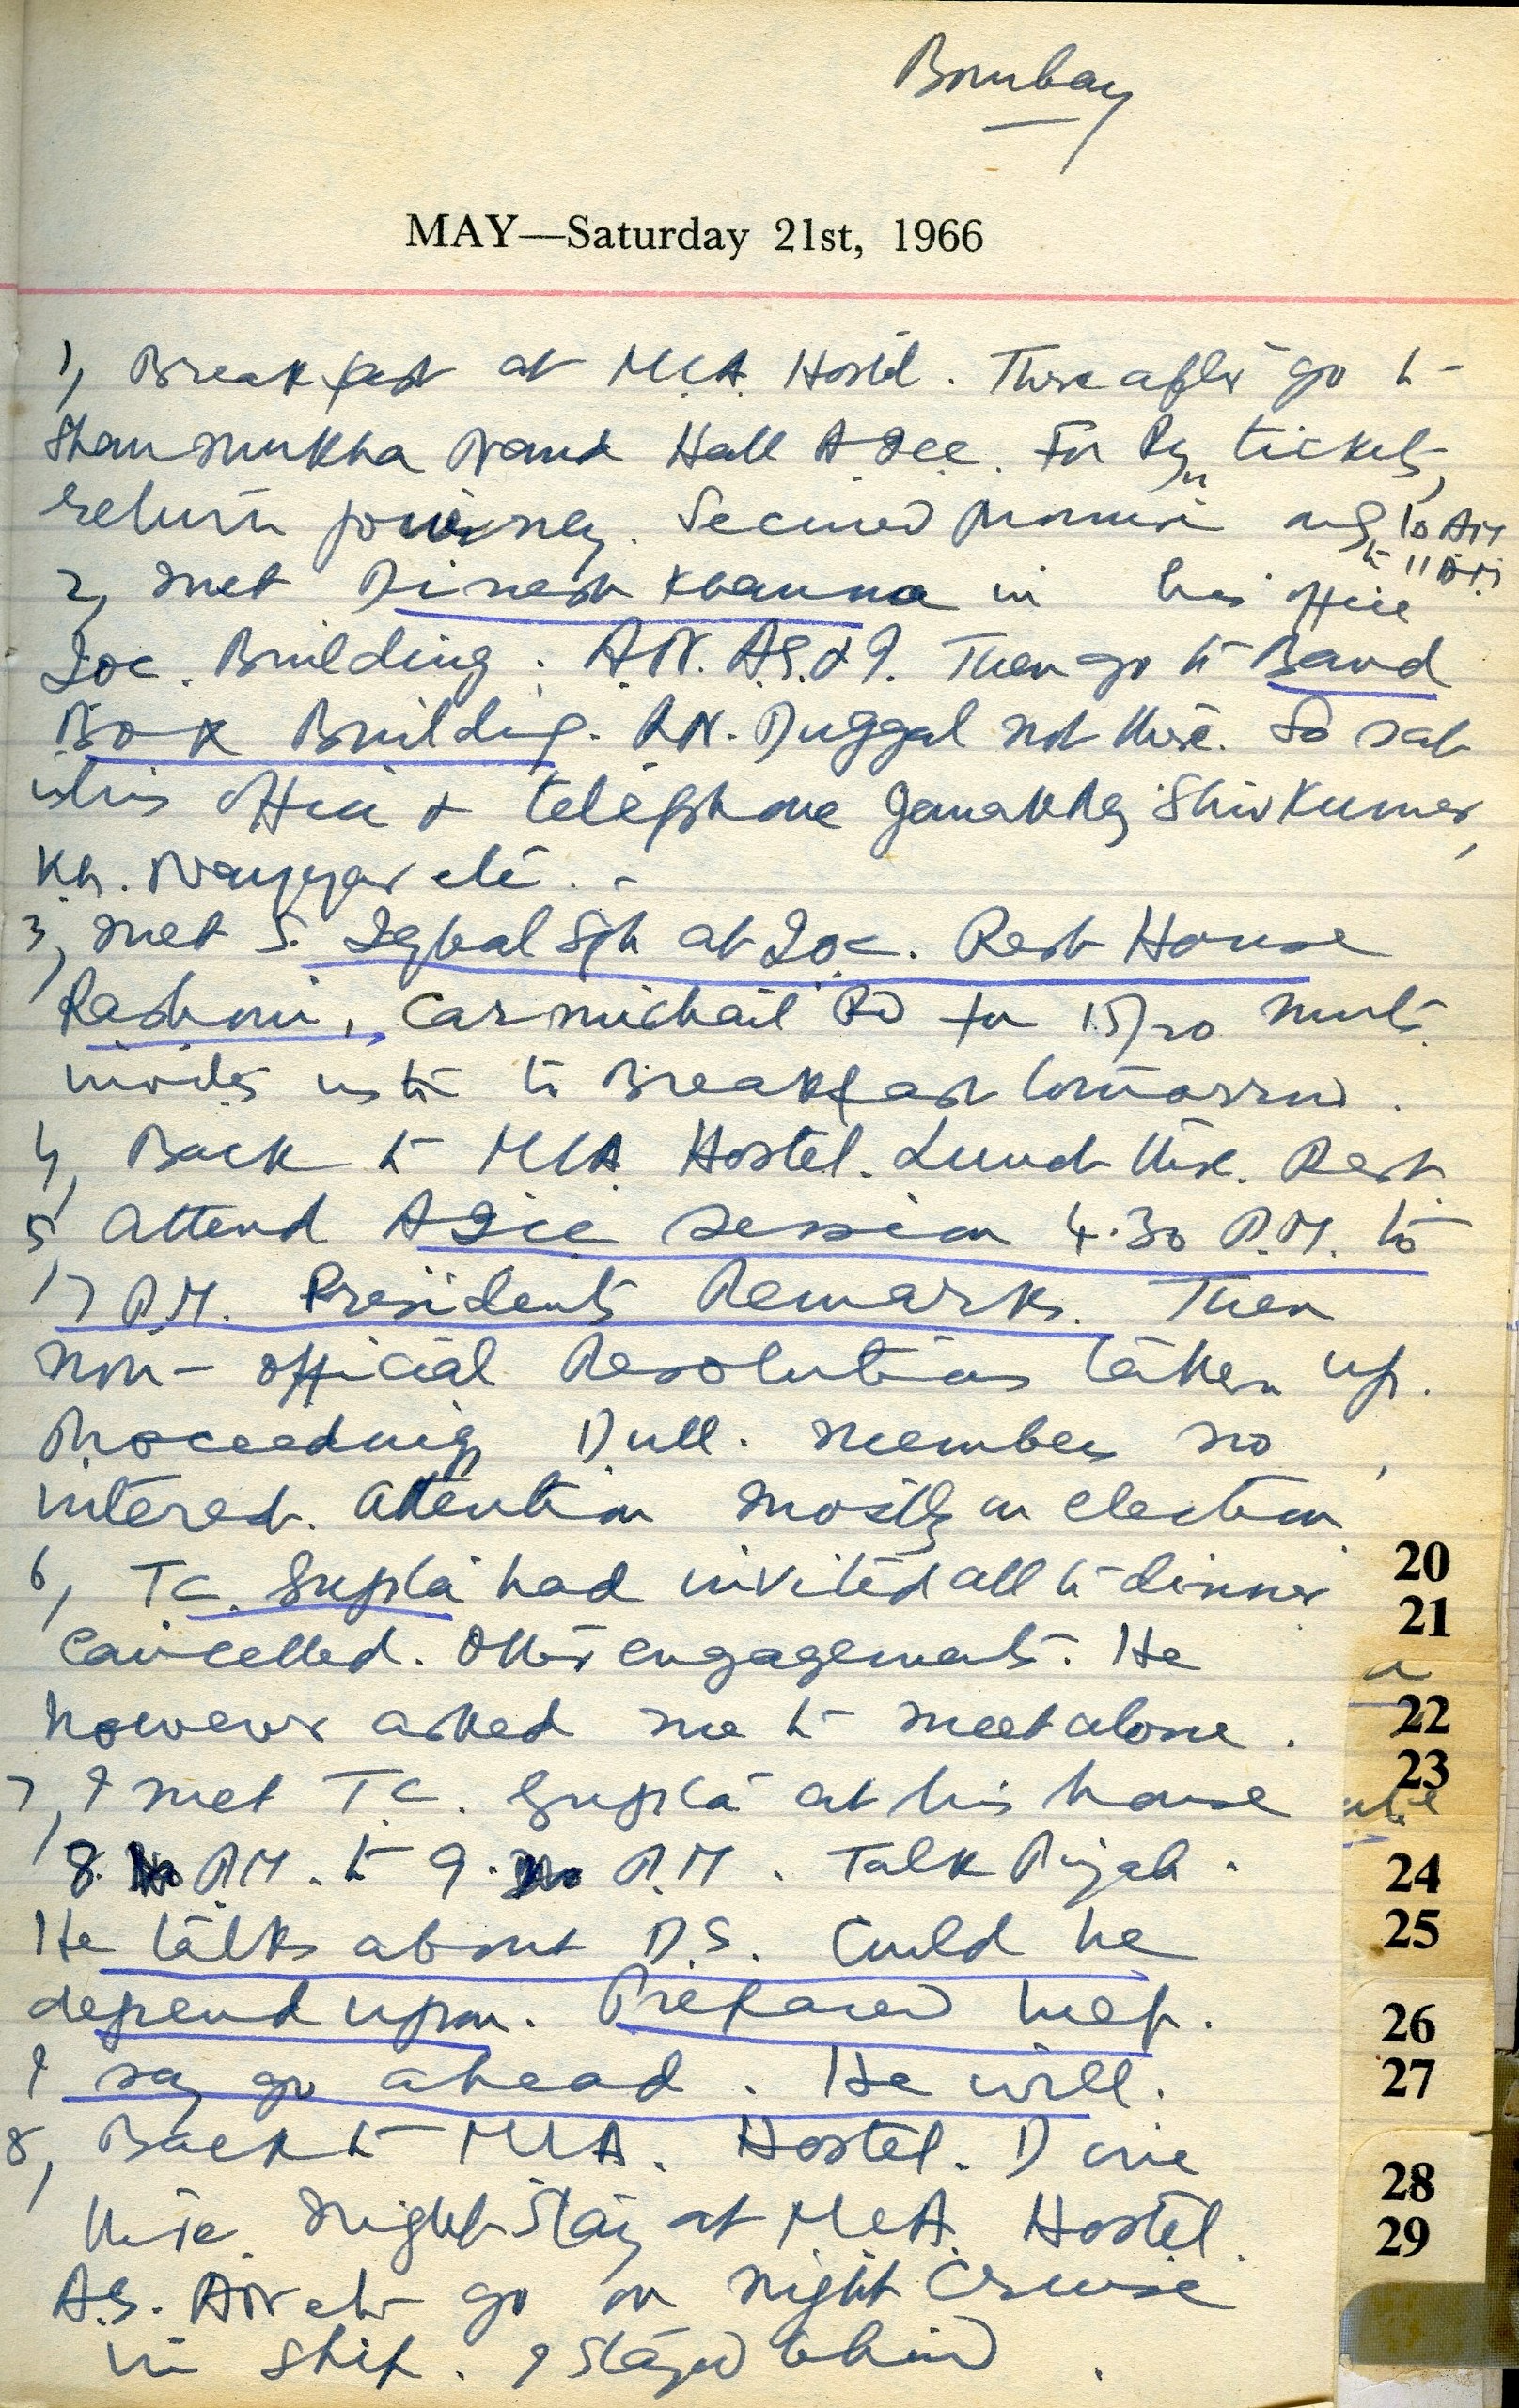 Bombay
MAY—Saturday 21st, 1966
1, Breakfast at M.L.A. Hostel. Thereafter go to
Shanmukha Nand Hall AICC. For Rly tickets,
return journey. Secured Promise only 10 AM
to 11 A.M.
2, met Dinesh Khanna in his office
Ioc. Building. A.N. A.S. & I. Then go to Band
Box Building. R.N. Duggal not there. So sat
in his office & telephone Shiv Kumar,
Kh. Nayyar etc.
3, met S. Iqbal Sgh at Ioc. Rest House
Rashmi, Carmichail Rd for 15/20 mnts
invites us to Breakfast tomorrow.
4, Back to MLA Hostel. Lunch there. Rest
5, attend AICC session 4.30 P.M. to
7 P.M. Presidents Remarks. Then
non-official Resolutions taken up.
Proceedings Dull. members no
interest. attention mostly on election
6, T.C. Gupta had invited all to dinner
cancelled. Other engagements. He
however asked me to meet alone.
7, I met T.C. Gupta at his house
8. P.M. to 9. P.M. Talk Punjab.
He talks about D.S. Could he
depend upon. Prepared help.
I say go ahead. He will.
8, Back to MLA. Hostel. Dine
there. Night Stay at MLA. Hostel.
A.S. AN etc go on night Cruise
in ship. I stayed behind.
20
21
22
23
24
25
26
27
28
29